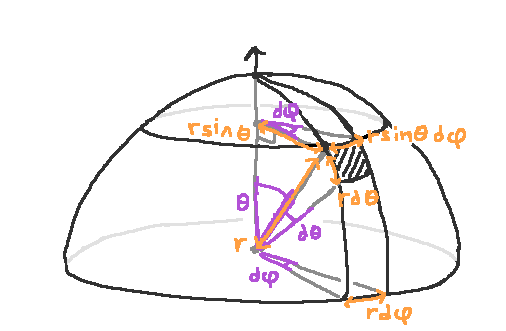 dφ
rsinθ
rsinθdφ
θ
rdθ
r
dθ
dφ
rdφ